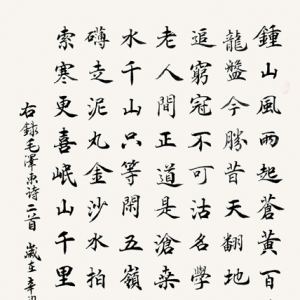 鍾山風雨起蒼黃百
龍盤今勝昔天翻地
追窮寇不可沽名學
老人間正道是滄桑
水千山只等閑五嶺
礴走泥丸金沙水拍
索寒更喜岷山千里
右錄毛澤東詩二首 歲在辛